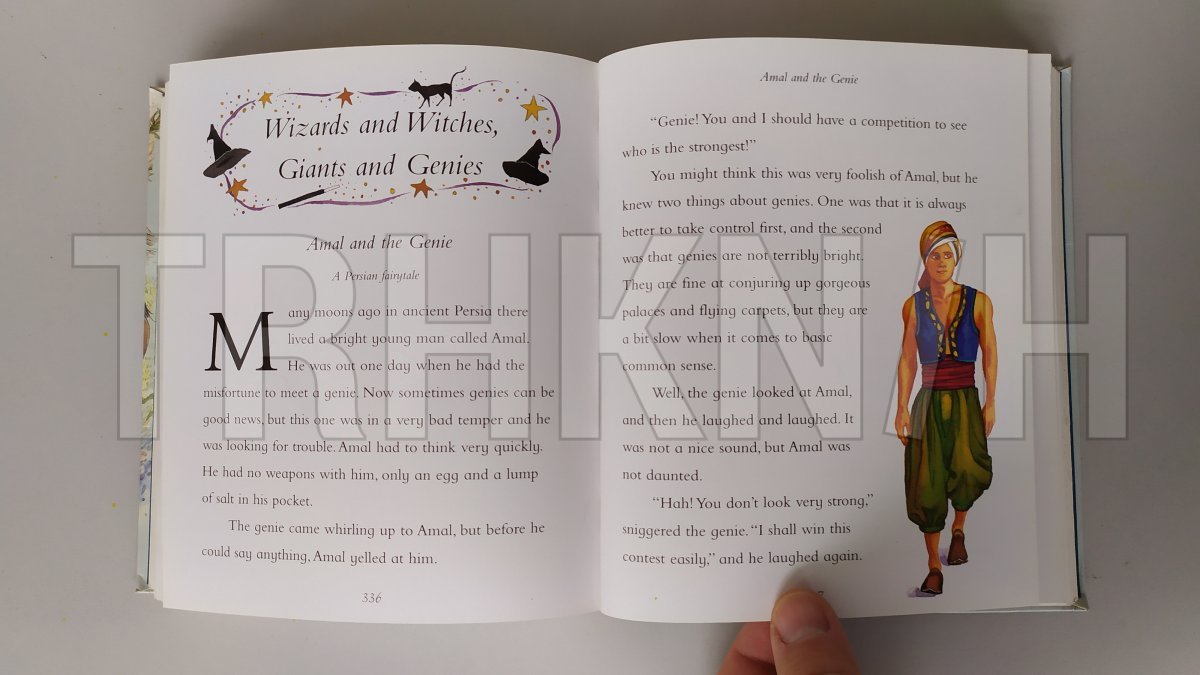 Wizards and Witches,
Giants and Genies
Amal and the Genie
A Persian fairytale
Many moons ago in ancient Persia there
lived a bright young man called Amal.
He was out one day when he had the
misfortune to meet a genie. Now sometimes genies can be
good news, but this one was in a very bad temper and he
was looking for trouble. Amal had to think very quickly.
He had no weapons with him, only an egg and a lump
of salt in his pocket.
The genie came whirling up to Amal, but before he
could say anything, Amal yelled at him.
336
Amal and the Genie
“Genie! You and I should have a competition to see
who is the strongest!”
You might think this was very foolish of Amal, but he
knew two things about genies. One was that it is always
better to take control first, and the second
was that genies are not terribly bright.
They are fine at conjuring up gorgeous
palaces and flying carpets, but they are
a bit slow when it comes to basic
common sense.
Well, the genie looked at Amal,
and then he laughed and laughed. It
was not a nice sound, but Amal was
not daunted.
“Hah! You don’t look very strong,”
sniggered the genie. “I shall win this
contest easily,” and he laughed again.
7
TRHKNAH